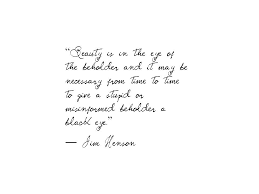 "Beauty is in the eye of
the beholder and it may be
necessary from time to time
to give a stupid or
misinformed beholder a
black eye."
― Jim Henson